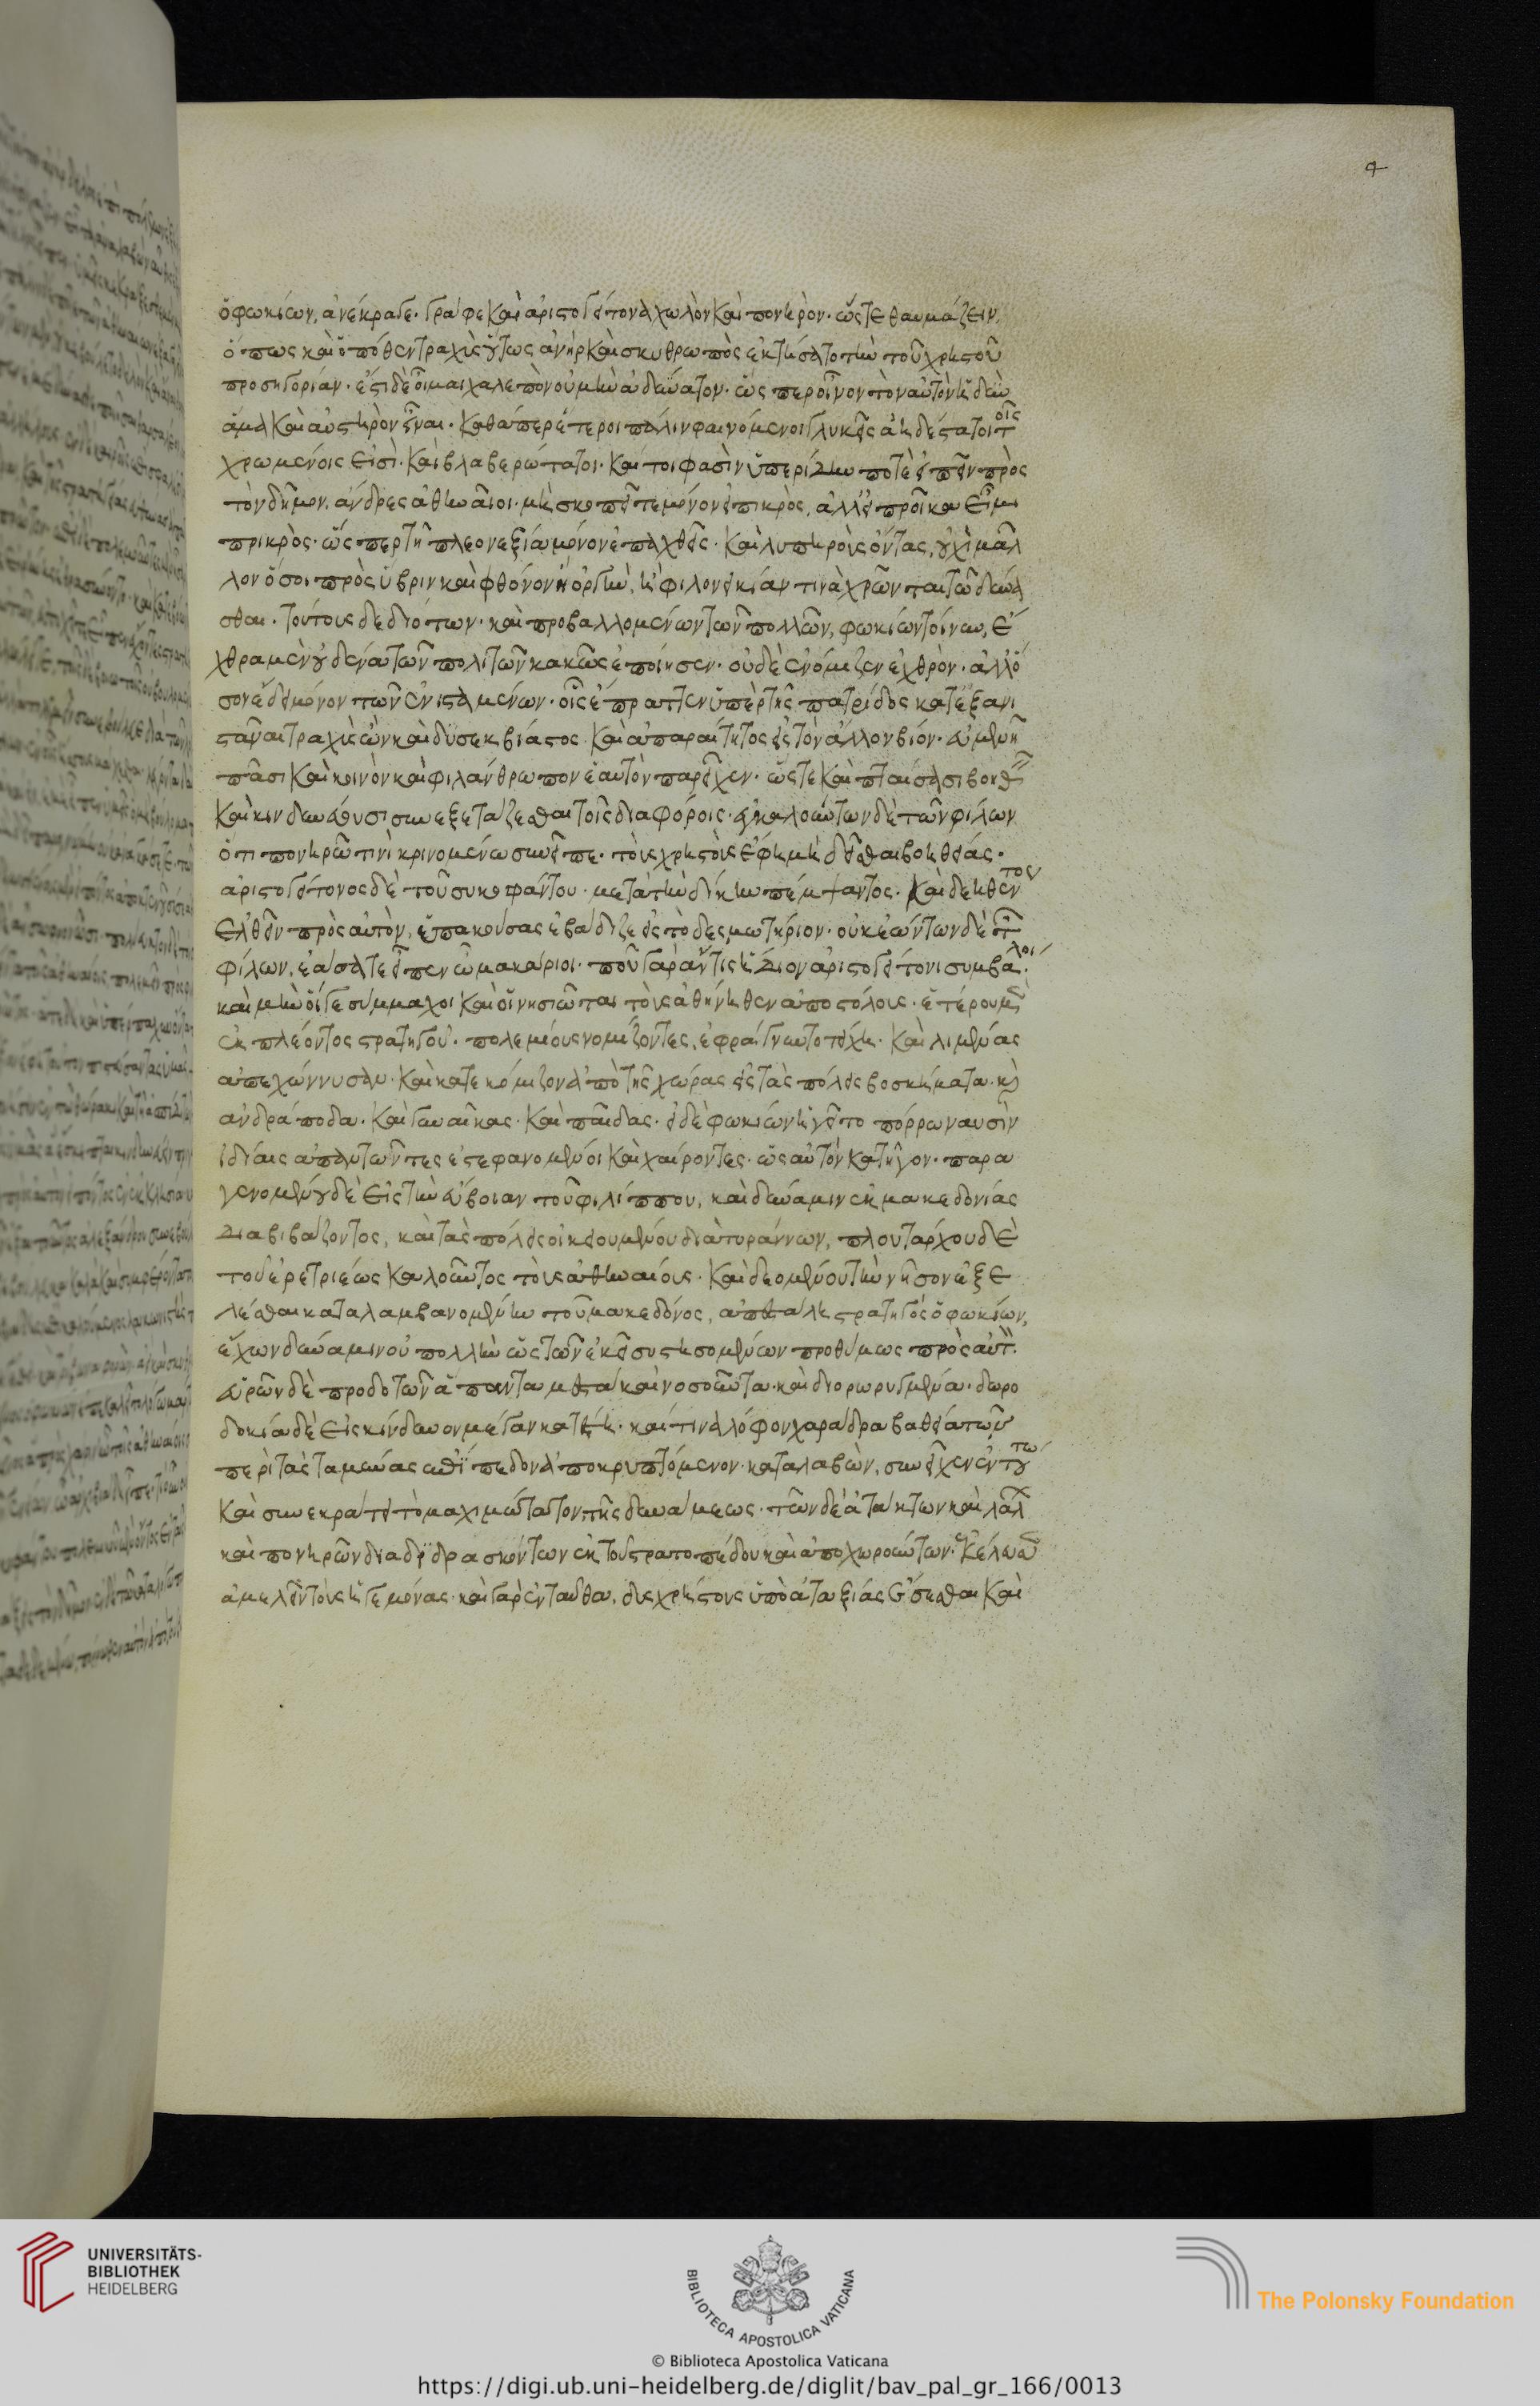 4
ὁ φωκίων, ἀνέκραγε· γράφε καὶ ἀριστογείτονα χωλὸν καὶ πονηρόν· ὥστε θαυμάζειν,
ὅπως καὶ ὁπόθεν τραχὺς οὕτως ἀνὴρ καὶ σκυθρωπὸς ἐκτήσατο τὴν τοῦ χρηστοῦ
προσηγορίαν· ἔστι δὲ οἶμαι χαλεπὸν οὐ μὴν ἀδύνατον· ὥσπερ οἶνον τὸν αὐτὸν ἡδὺν
ἅμα καὶ αὐστηρὸν εἶναι· καθάπερ ἕτεροι πάλιν φαινόμενοι γλυκεῖς ἀηδέστατοι τοῖς
χρωμένοις εἰσὶ· καὶ βλαβερώτατοι· καί τοι φασὶν ὑπερίδην ποτὲ εἰπεῖν πρὸς
τὸν δῆμον, ἄνδρες ἀθηναῖοι· μὴ σκοπεῖτε μόνον εἰ πικρὸς, ἀλλ' εἰ προῖκα εἰμι
πρικρὸς· ὥσπερ τῇ πλεονεξία μόνον ἐπαχθεῖς· καὶ λυπηροὺς ὄντας, οὐχὶ μᾶλ
λον ὅσοι πρὸς ὕβριν καὶ φθόνον ἢ ὀργὴν, ἢ φιλονεικίαν τινὰ χρῶνται τῶ δύνα
σθαι· τούτους δεδιότων· καὶ προβαλλομένων τῶν πολλῶν, φωκίων τοίνυν, ἔ
χθρα μὲν οὐδένα τῶν πολιτῶν κακῶς ἐποίησεν· οὐδὲ ἐνόμιζεν ἐχθρόν· ἀλλ' ὅ
σον ἔδει μόνον τῶν ἐνισταμένων· οἷς ἔπραττεν ὑπὲρ τῆς πατρίδος κατεξανι
στᾶναι τραχὺς ὢν καὶ δύσεκβίαστος καὶ ἀπαραίτητος εἰς τὸν ἄλλον βίον· εὐμενῆ
πᾶσι καὶ κοινὸν καὶ φιλάνθρωπον ἑαυτὸν παρεῖχεν· ὥστε καὶ πταίσασι βοηθεῖν
καὶ κινδυνεύουσι συνεξετάζεσθαι τοῖς διαφόροις· ἐγκαλούντων δὲ τῶν φίλων
ὅτι πονηρῶ τινὶ κρινομένω συνεῖπε· τοὺς χρηστοὺς ἔφη μὴ δεῖσθαι βοηθείας·
ἀριστογείτονος δὲ τοῦ συκοφάντου· μετὰ τὴν δίκην πέμψαντος· καὶ δεηθέντος
ἐλθεῖν πρὸς αὐτὸν, ὑπακούσας ἐβάδιζε εἰς τὸ δεσμωτήριον· οὐκ ἐώντων δὲ τῶν
φίλων, ἐάσατε εἶπεν ὦ μακάριοι· ποῦ γὰρ ἄν τις ἥδιον ἀριστογείτονι συμβάλοι·
καὶ μὴν οἵ γε σύμμαχοι καὶ οἱ νησιῶται τοὺς ἀθήνηθεν ἀποστόλους· ἑτέρου μὲν
ἐκπλέοντος στρατηγοῦ· πολεμίους νομίζοντες, ἐφράγνυντο τείχη· καὶ λιμένας
ἀπεχώννυσαν· καὶ κατεκόμιζον ἀπὸ τῆς χώρας εἰς τὰς πόλεις βοσκήματα· καὶ
ἀνδράποδα· καὶ γυναῖκας· καὶ παῖδας· εἰ δὲ φωκίων ἡγεῖτο πόρρω ναυσὶν
ἰδίαις ἀπαντῶντες ἐστεφανωμένοι καὶ χαίροντες· ὡς αὐτὸν κατῆγον· παρα
γενομένου δὲ εἰς τὴν εὔβοιαν τοῦ φιλίππου, καὶ δύναμιν ἐκ μακεδονίας
διαβιβάζοντος, καὶ τὰς πόλεις οἰκειουμένου διὰ τυράννων, πλουτάρχου δὲ
τοῦ ἐρετριέως καλοῦντος τοὺς ἀθηναίους· καὶ δεομένου τὴν νῆσον ἐξε
λέσθαι καταλαμβανομένην τοῦ μακεδόνος, ἀπεστάλη στρατηγὸς ὁ φωκίων,
ἔχων δύναμιν οὐ πολλὴν ὡς τῶν ἐκεῖ συστησομένων προθύμως πρὸς αὐτόν.
εὑρὼν δὲ προδοτῶν ἅπαντα μεστὰ καὶ νοσοῦντα· καὶ διορωρυγμένα· δωρο
δοκία δὲ εἰς κίνδυνον μέγαν κατέστη· καί τινα λόφον χαράδρα βαθεία τῶν
περὶ τὰς ταμύνας ἐπιπέδων ἀποκρυπτόμενον· καταλαβὼν, συνεῖχεν ἐν τούτω
καὶ συνεκράτει τὸ μαχιμώτατον τῆς δυνάμεως· τῶν δὲ ἀτάκτων καὶ λάλων
καὶ πονηρῶν διαδιδρασκόντων ἐκ τοῦ στρατοπέδου καὶ ἀποχωρούντων· ἐκέλευσεν
ἀμελεῖν τοὺς ἡγεμόνας· καὶ γὰρ ἐνταῦθα, δυσχρήστους ὑπὸ ἀταξίας ἔσεσθαι καὶ
UNIVERSITÄTS-
BIBLIOTHEK
HEIDELBERG
BIBLIOTECA APOSTOLICA VATICANA
The Polonsky Foundation
© Biblioteca Apostolica Vaticana
https://digi.ub.uni-heidelberg.de/diglit/bav_pal_gr_166/0013